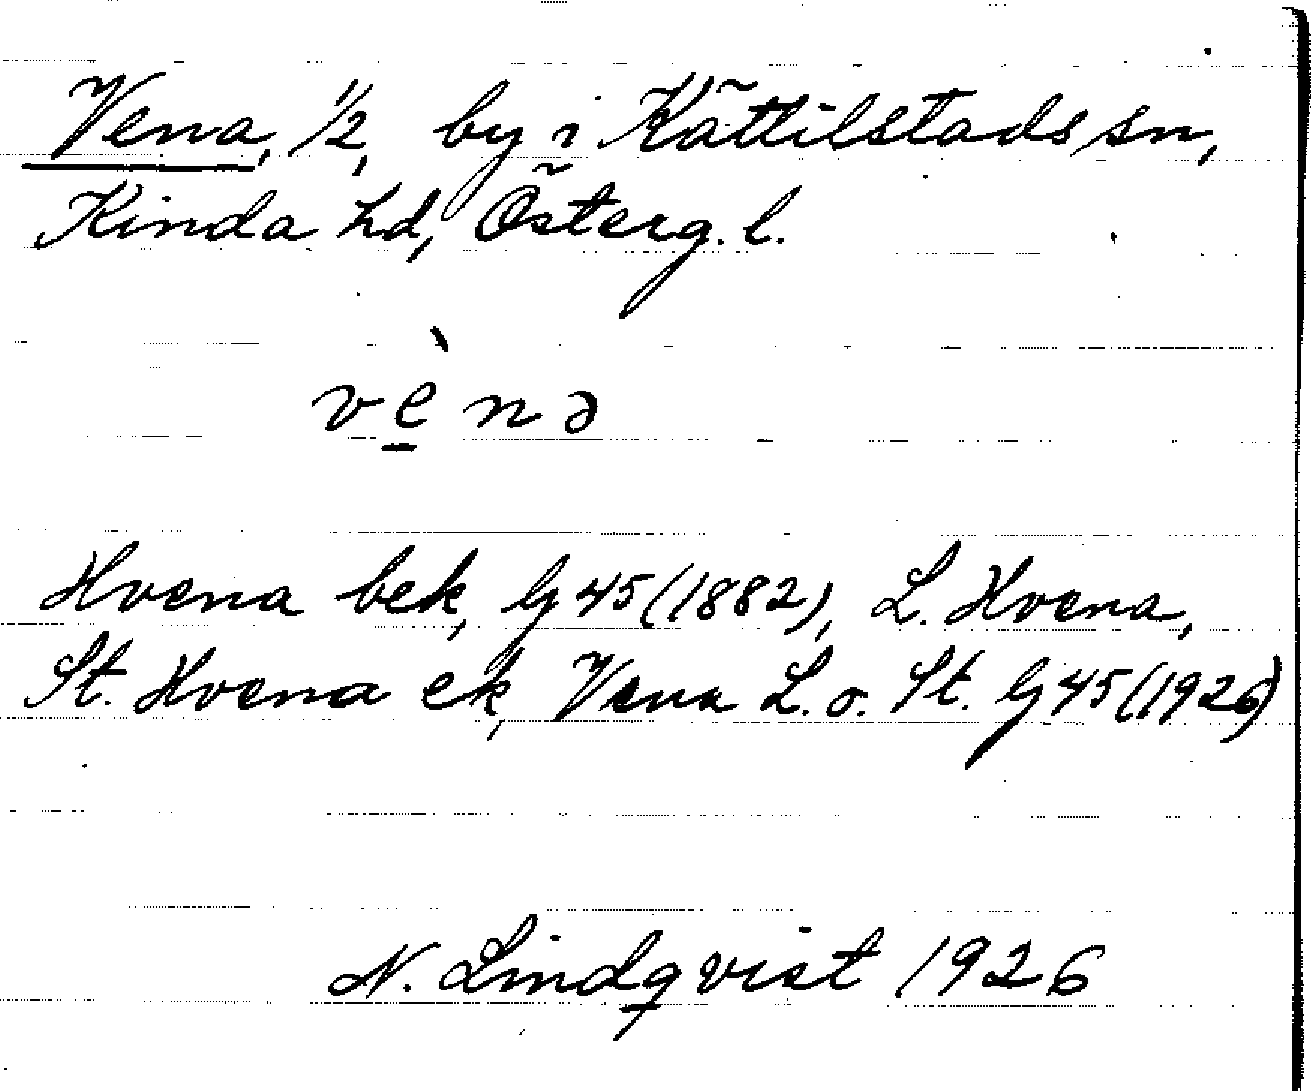 Vena, 1/2, by i Kättilstads sn,
Kinda hd, Österg. l.
vè̱nə
Hvena bek, Gj 45 (1882), L. Hvena,
St. Hvena ek, Vena L. o. St. Gj 45 (1926)
N. Lindqvist 1926